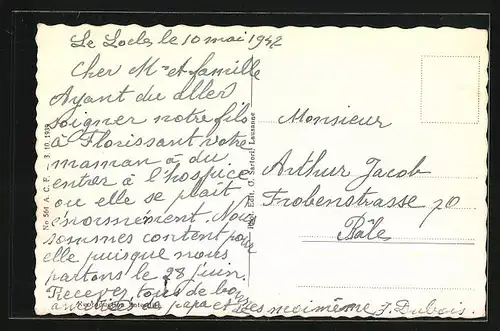 Le Locle, le 10 mai 1942
Cher Mr et famille
Ayant du aller
soigner notre fils
à Florissant votre
maman a du
entrer à l'hospice
ou elle se plaît
énormément. Nous
sommes content pour
elle puisque nous
partons le 28 juin.
Recevez tous de bons
du papa et moimême J. Dubois.
Monsieur
Arthur Jacob
Frobenstrasse 70
Bâle
No 564 A. C. F. 3. 10. 1939
Edit. O. Sartori, Lausanne